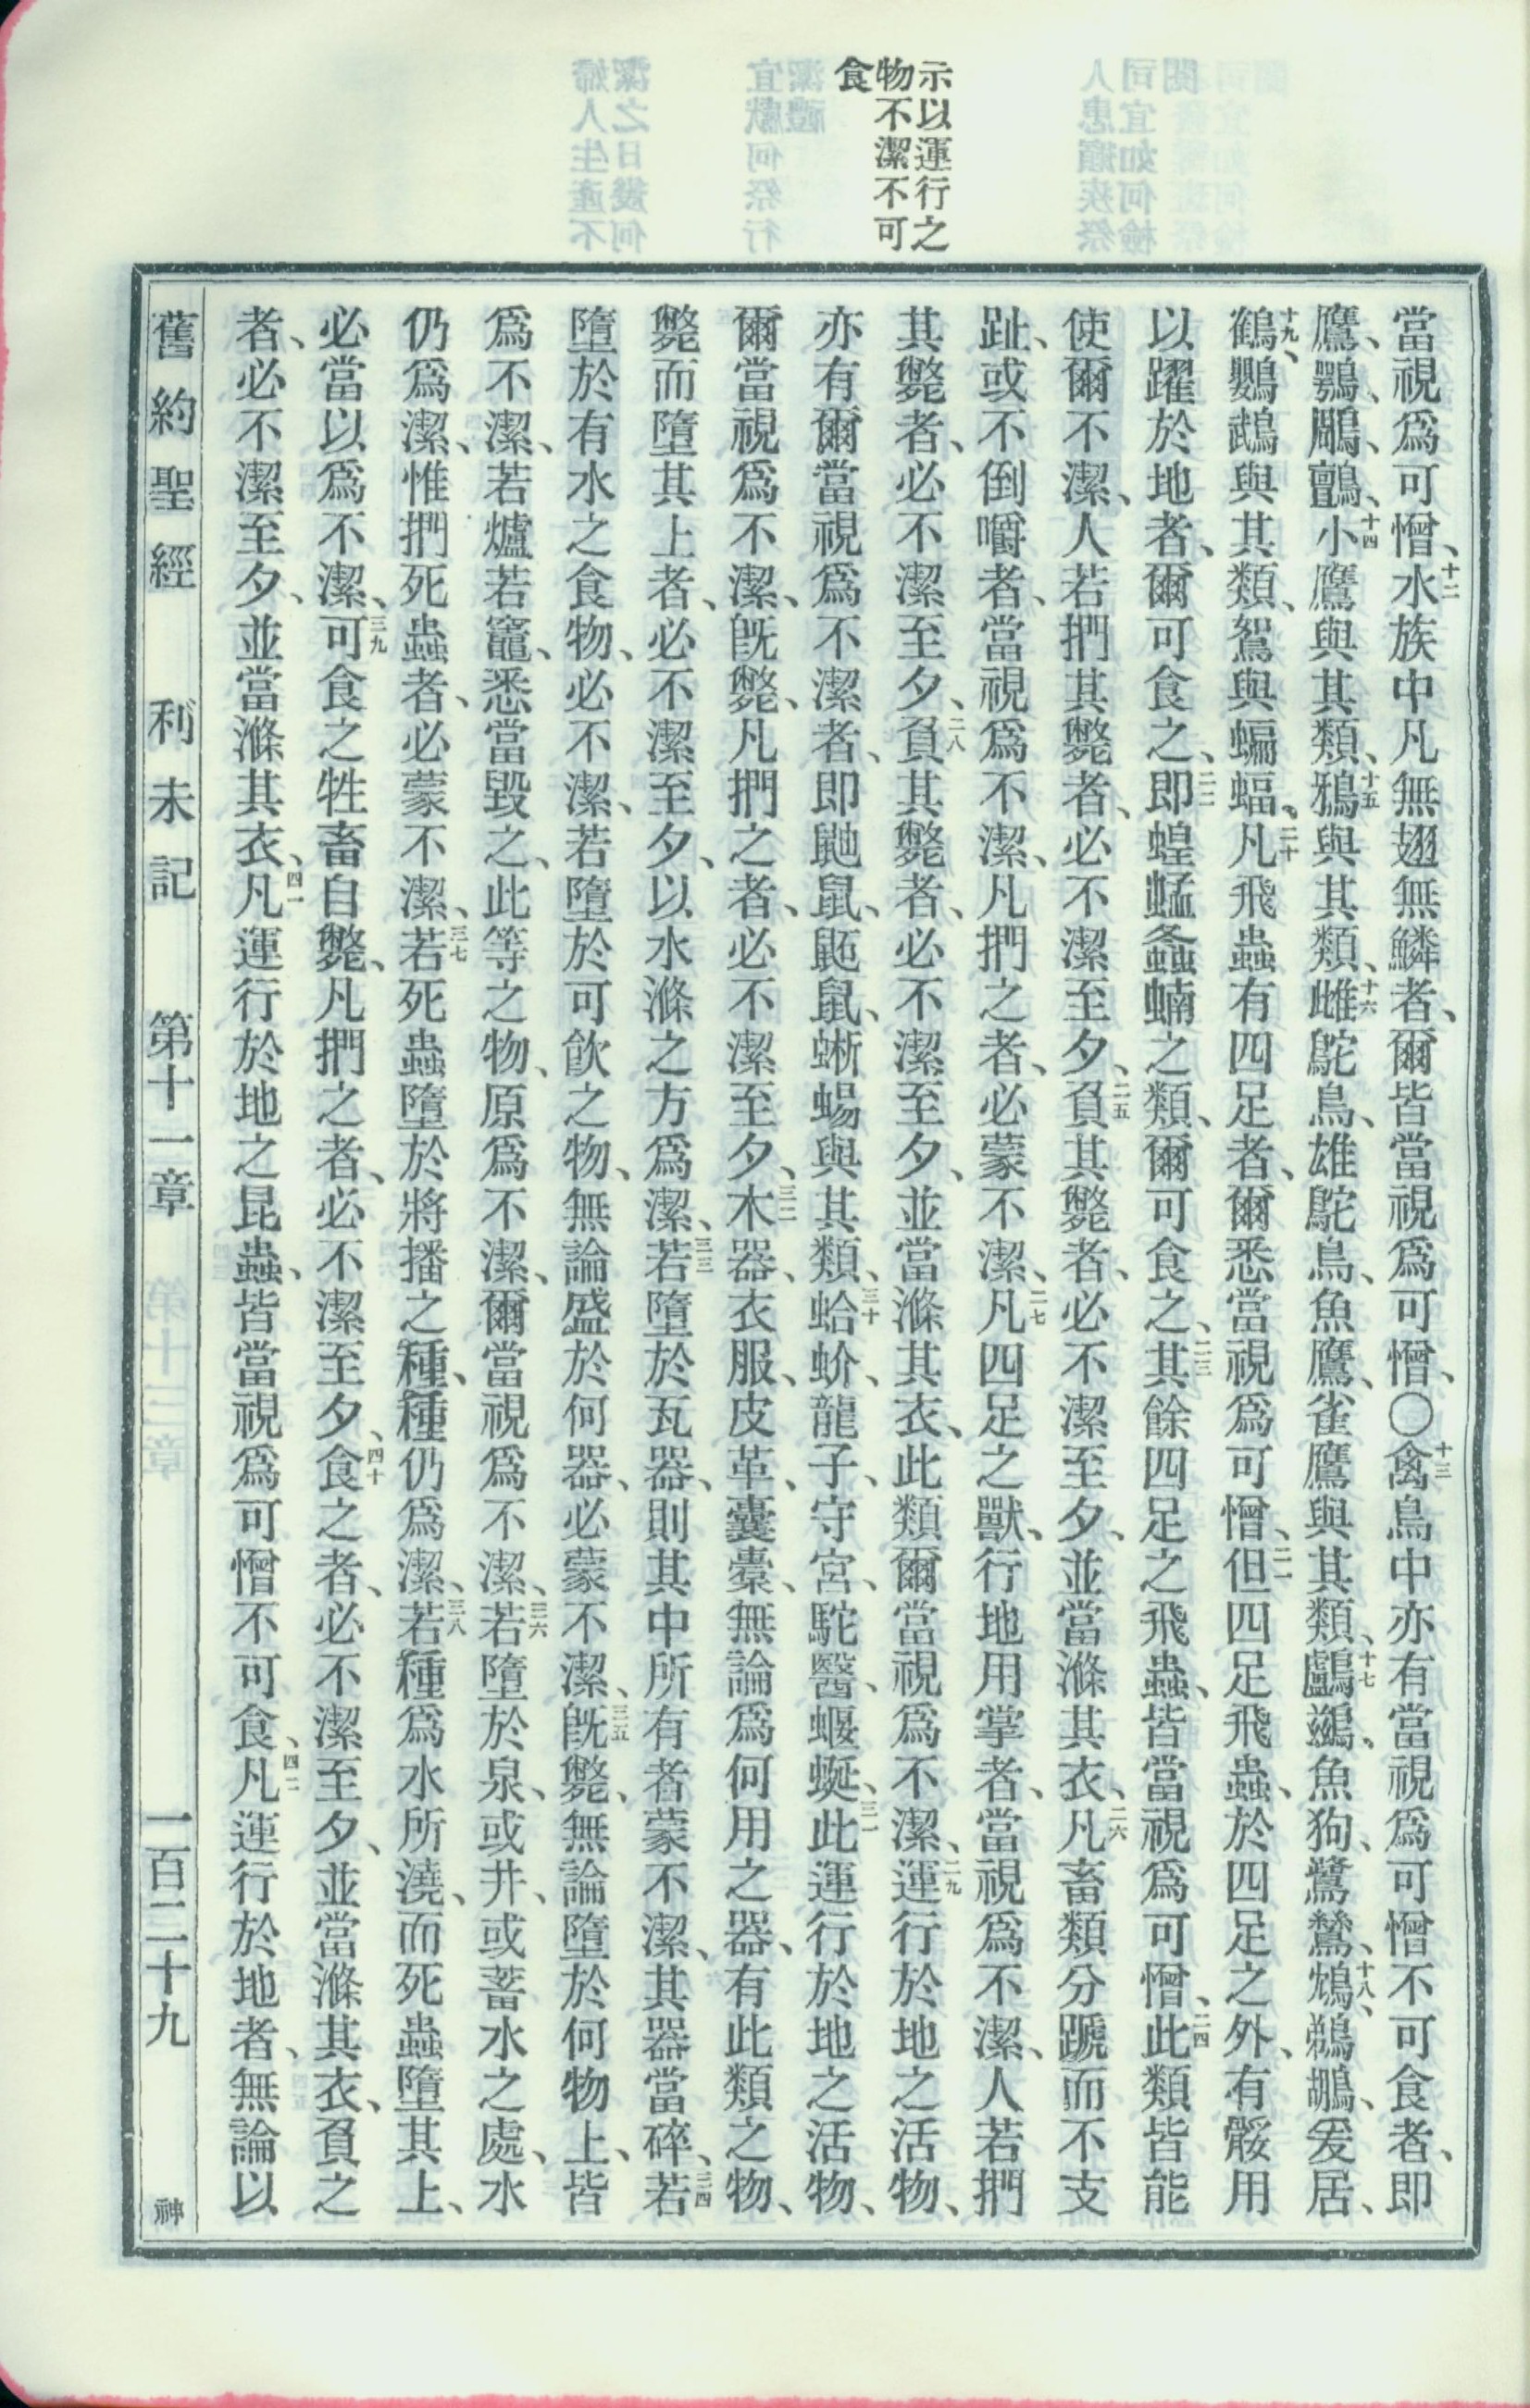 示以運行之
物不潔不可
食
當視爲可憎、十二水族中凡無翅無鱗者、爾皆當視爲可憎、〇十三禽鳥中亦有當視爲可憎不可食者、即
鷹、鶚、鵰、鸇、十四小鷹與其類、十五鴉與其類、十六雌鴕鳥、雄鴕鳥、魚鷹、雀鷹與其類、十七鸕鷀、魚狗、鷺鶿、十八鴆、鵜鶘、爰居、
十九鶴、鸚鵡與其類、鴐與蝙蝠、二十凡飛蟲有四足者、爾悉當視爲可憎、二一但四足飛蟲、於四足之外、有骽用
以躍於地者、爾可食之、二二即蝗蜢螽蝻之類、爾可食之、二三其餘四足之飛蟲、皆當視爲可憎、二四此類皆能
使爾不潔、人若捫其斃者、必不潔至夕、二五負其斃者、必不潔至夕、並當滌其衣、二六凡畜類分蹏而不支
趾、或不倒嚼者、當視爲不潔、凡捫之者、必蒙不潔、二七凡四足之獸、行地用掌者、當視爲不潔、人若捫
其斃者、必不潔至夕、二八負其斃者、必不潔至夕、並當滌其衣、此類爾當視爲不潔、二九運行於地之活物、
亦有爾當視爲不潔者、即鼬鼠、鼫鼠、蜥蜴與其類、三十蛤蚧、龍子、守宮、駝醫、蝘蜒、三一此運行於地之活物、
爾當視爲不潔、旣斃、凡捫之者、必不潔至夕、三二木器、衣服、皮革、囊橐、無論爲何用之器、有此類之物、
斃而墮其上者、必不潔至夕、以水滌之方爲潔、三三若墮於瓦器、則其中所有者蒙不潔、其器當碎、三四若
墮於有水之食物、必不潔、若墮於可飲之物、無論盛於何器、必蒙不潔、三五旣斃、無論墮於何物上、皆
爲不潔、若爐若竈、悉當毀之、此等之物、原爲不潔、爾當視爲不潔、三六若墮於泉、或井、或蓄水之處、水
仍爲潔、惟捫死蟲者、必蒙不潔、三七若死蟲墮於將播之種、種仍爲潔、三八若種爲水所澆、而死蟲墮其上、
必當以爲不潔、三九可食之牲畜自斃、凡捫之者、必不潔至夕、四十食之者、必不潔至夕、並當滌其衣、負之
者、必不潔至夕、並當滌其衣、四一凡運行於地之昆蟲、皆當視爲可憎不可食、四二凡運行於地者、無論以
舊約聖經 利未記 第十一章 一百二十九 神